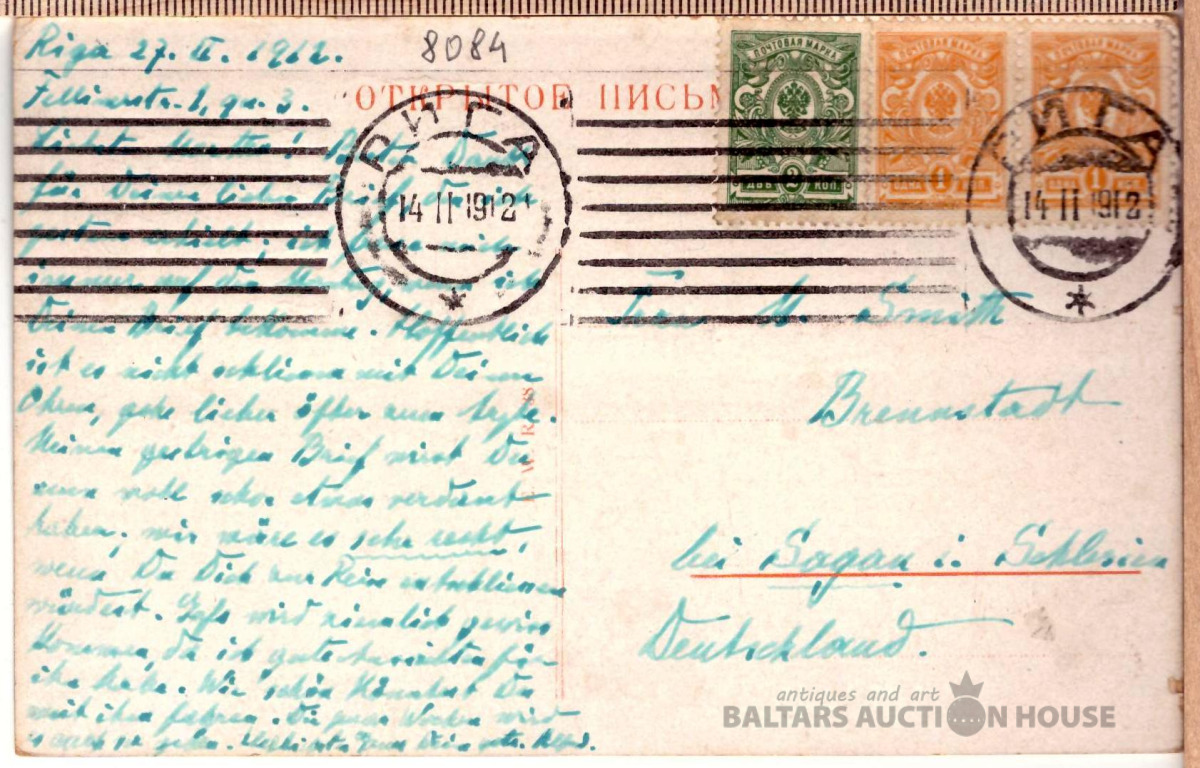 Riga 27. II. 1912.
8084
Fellinerstr. 1, qu. 3.
ОТКРЫТОЕ ПИСЬМ
ПОЧТОВАЯ МАРКА
ДВѢ 2 КОП.
ПОЧТОВАЯ МАРКА
ОДНА 1 КОП.
ПОЧТОВАЯ МАРКА
ОДНА 1 КОП.
РИГА
14 II 1912
РИГА
14 II 1912
Dank
für Deinen lieben Brief, den ich
gestern erhielt; ich
immer auf den
Deinen Brief bekomme. Hoffentlich
ist es nicht schlimm mit Deinen
Ohren, gehe lieber öfter zum Arzte.
Meinen gestrigen Brief wirst Du
nun wohl schon etwas verdaut
haben; mir wäre es sehr recht,
wenn Du Dich zur Reise entschliessen
würdest. wird ziemlich gewiss
kommen, da ich gute für
ihn habe. Wie schön könntest Du
mit ihm fahren. Die paar Wochen wird
es auch so gehen.
Frau M. Smith
Brennstadt
bei Sagan i. Schlesien
Deutschland.
antiques and art
BALTARS AUCTION HOUSE